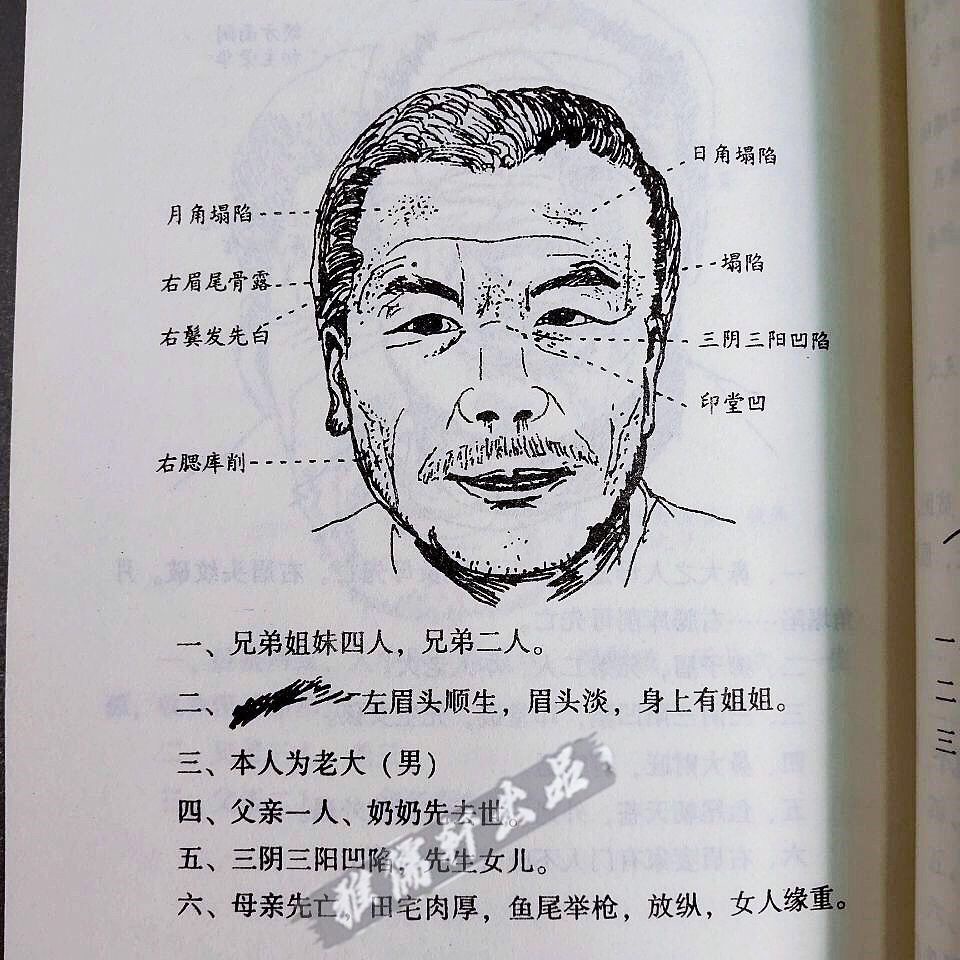 日角塌陷
月角塌陷
塌陷
右眉尾骨露
右鬓发先白
三阴三阳凹陷
印堂凹
右腮库削
一、兄弟姐妹四人，兄弟二人。
二、左眉头顺生，眉头淡，身上有姐姐。
三、本人为老大（男）
四、父亲一人、奶奶先去世。
五、三阴三阳凹陷，先生女儿。
六、母亲先亡，田宅肉厚，鱼尾举枪，放纵，女人缘重。
一
二
三